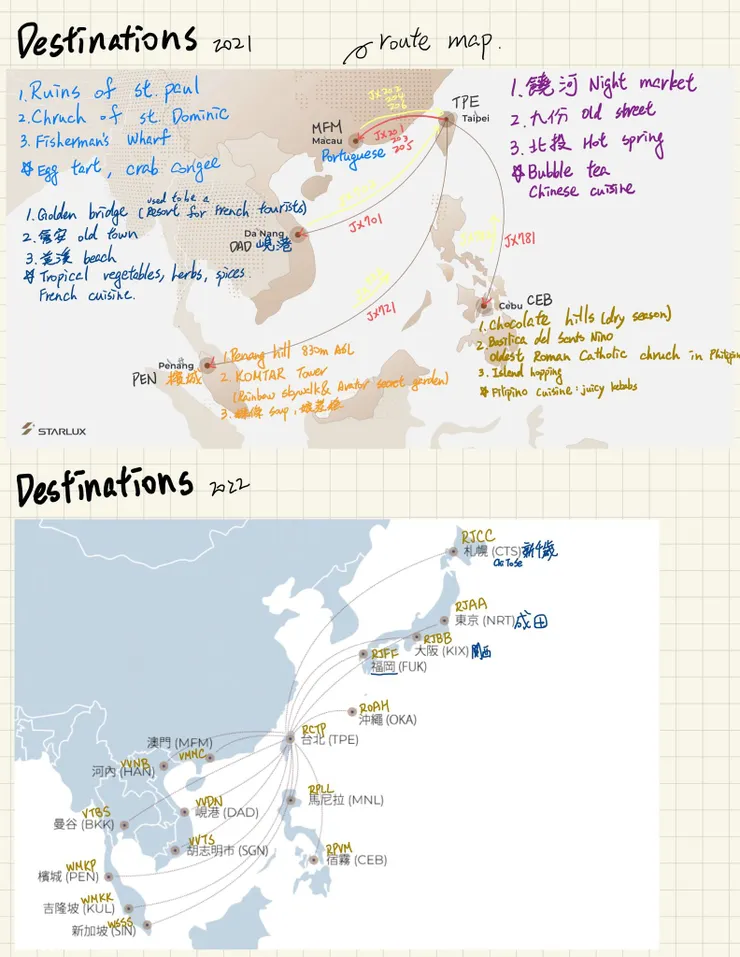 Destinations 2021
route map.
1. Ruins of st. paul
2. Chruch of st. Dominic
3. Fisherman's Wharf
Egg tart, crab congee
MFM
Macau
Portuguese
JX202
204
206
JX201
203
205
TPE
Taipei
1. 饒河 Night market
2. 九份 old street
3. 北投 Hot spring
Bubble tea
Chinese cuisine
used to be a
1. Golden bridge (Resort for French tourists)
2. 會安 old town
3. 美溪 beach
Tropical vegetables, herbs, spices
French cuisine.
Da Nang
DAD 峴港
JX701
JX781
JX721
Cebu CEB
1. Chocolate hills (dry season)
2. Basilica del Santo Nino
oldest Roman Catholic chruch in
3. Island hopping
Filipino cuisine: juicy kebabs
Penang
PEN 檳城
1. Penang hill 830m ASL
2. KOMTAR Tower
(Rainbow skywalk & Avator secret garden)
3. soup,
STARLUX
Destinations 2022
RJCC
札幌 (CTS) 新千歲
RJAA
東京 (NRT) 成田
RJBB
大阪 (KIX) 関西
RJFF
福岡 (FUK)
ROAH
沖繩 (OKA)
RCTP
台北 (TPE)
澳門 (MFM)
VMMC
VVNB
河內 (HAN)
VVDN
峴港 (DAD)
RPLL
馬尼拉 (MNL)
VTBS
曼谷 (BKK)
VVTS
胡志明市 (SGN)
RPVM
宿霧 (CEB)
WMKP
檳城 (PEN)
WMKK
吉隆坡 (KUL)
WSSS
新加坡 (SIN)